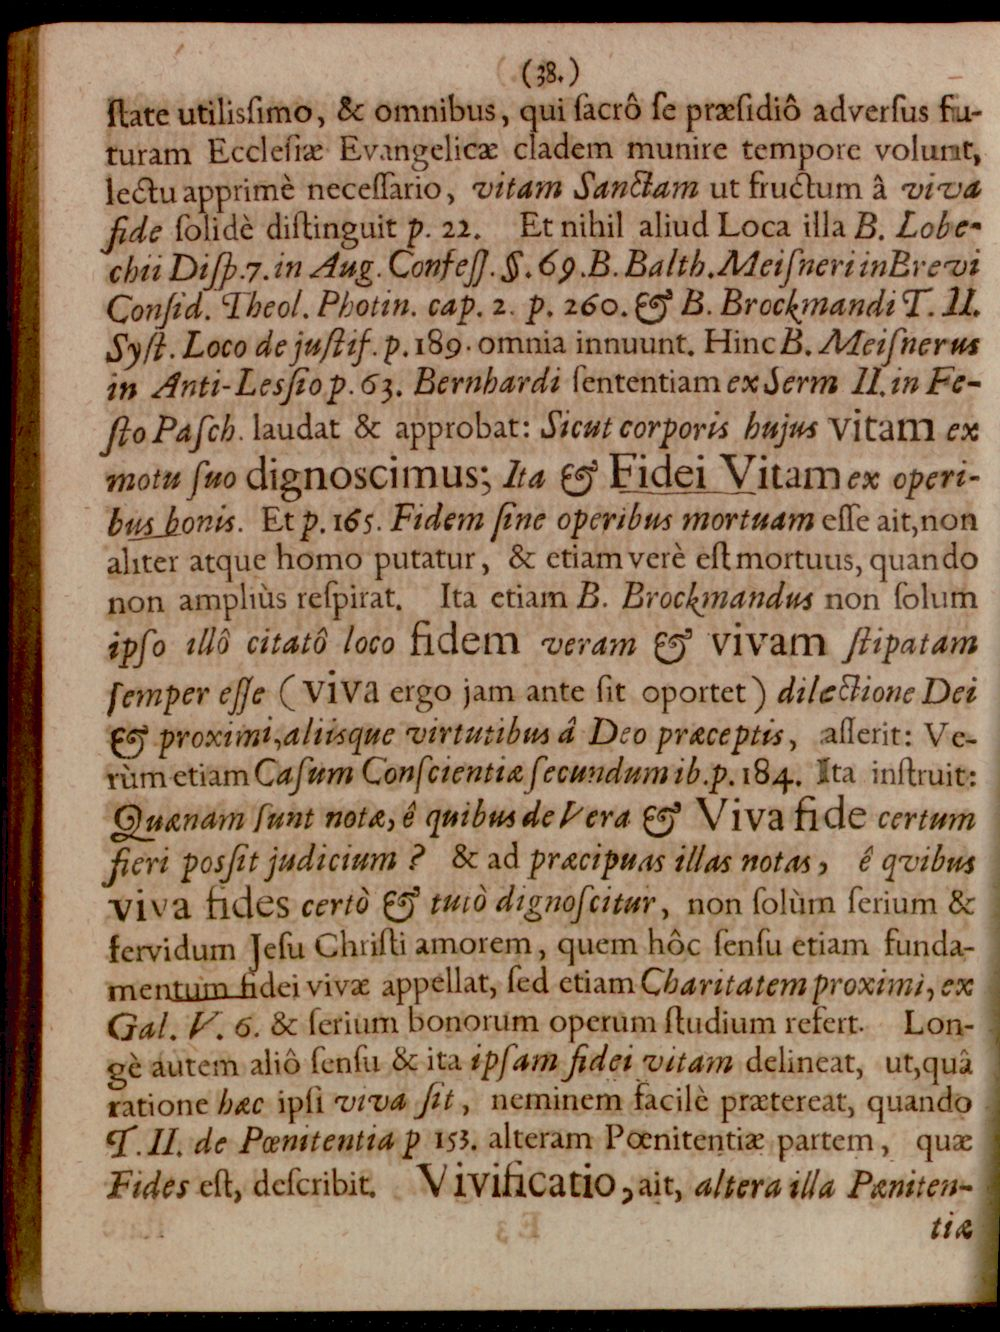 (38.)
ſtate utilisſimo, & omnibus, qui ſacrô ſe præſidiô adverſus fu-
turam Eccleſiæ Evangelicæ cladem munire tempore volunt,
lectu apprimè neceſſario, vitam Sanctam ut fructum â viva
fide ſolidè diſtinguit p. 22. Et nihil aliud Loca illa B. Lobe-
chii Diſp. 7. in Aug. Confeſſ. §. 69. B. Balth. Meiſneri in Brevi
Conſid. Theol. Photin. cap. 2. p. 260. & B. Brockmandi T. II.
Syſt. Loco de juſtif. p. 189. omnia innuunt. Hinc B. Meiſnerus
in Anti-Lesſio p. 63. Bernhardi ſententiam ex Serm II. in Fe-
ſto Paſch. laudat & approbat: Sicut corporis hujus vitam ex
motu ſuo dignoscimus; Ita & Fidei Vitam ex operi-
bus bonis. Et p. 165. Fidem ſine operibus mortuam eſſe ait, non
aliter atque homo putatur, & etiam verè eſt mortuus, quando
non ampliùs reſpirat. Ita etiam B. Brockmandus non ſolum
ipſo illô citatô loco fidem veram & vivam ſtipatam
ſemper eſſe (viva ergo jam ante ſit oportet) dilectione Dei
& proximi, aliisque virtutibus â Deo præceptis, aſſerit: Ve-
rùm etiam Caſum Conſcientiæ ſecundum ib. p. 184. Ita inſtruit:
Quænam ſunt notæ, ê quibus de Vera & Viva fide certum
fieri posſit judicium? & ad præcipuas illas notas, ê qvibus
viva fides certò & tutò dignoſcitur, non ſolùm ſerium &
fervidum Jeſu Chriſti amorem, quem hôc ſenſu etiam funda-
mentum fidei vivæ appellat, ſed etiam Charitatem proximi, ex
Gal. V. 6. & ſerium bonorum operum ſtudium refert. Lon-
gè autem aliô ſenſu & ita ipſam fidei vitam delineat, ut, quâ
ratione hæc ipſi viva ſit, neminem facilè prætereat, quando
T. II. de Pœnitentia p 153. alteram Pœnitentiæ partem, quæ
Fides eſt, deſcribit. Vivificatio, ait, altera illa Pæniten-
tiæ